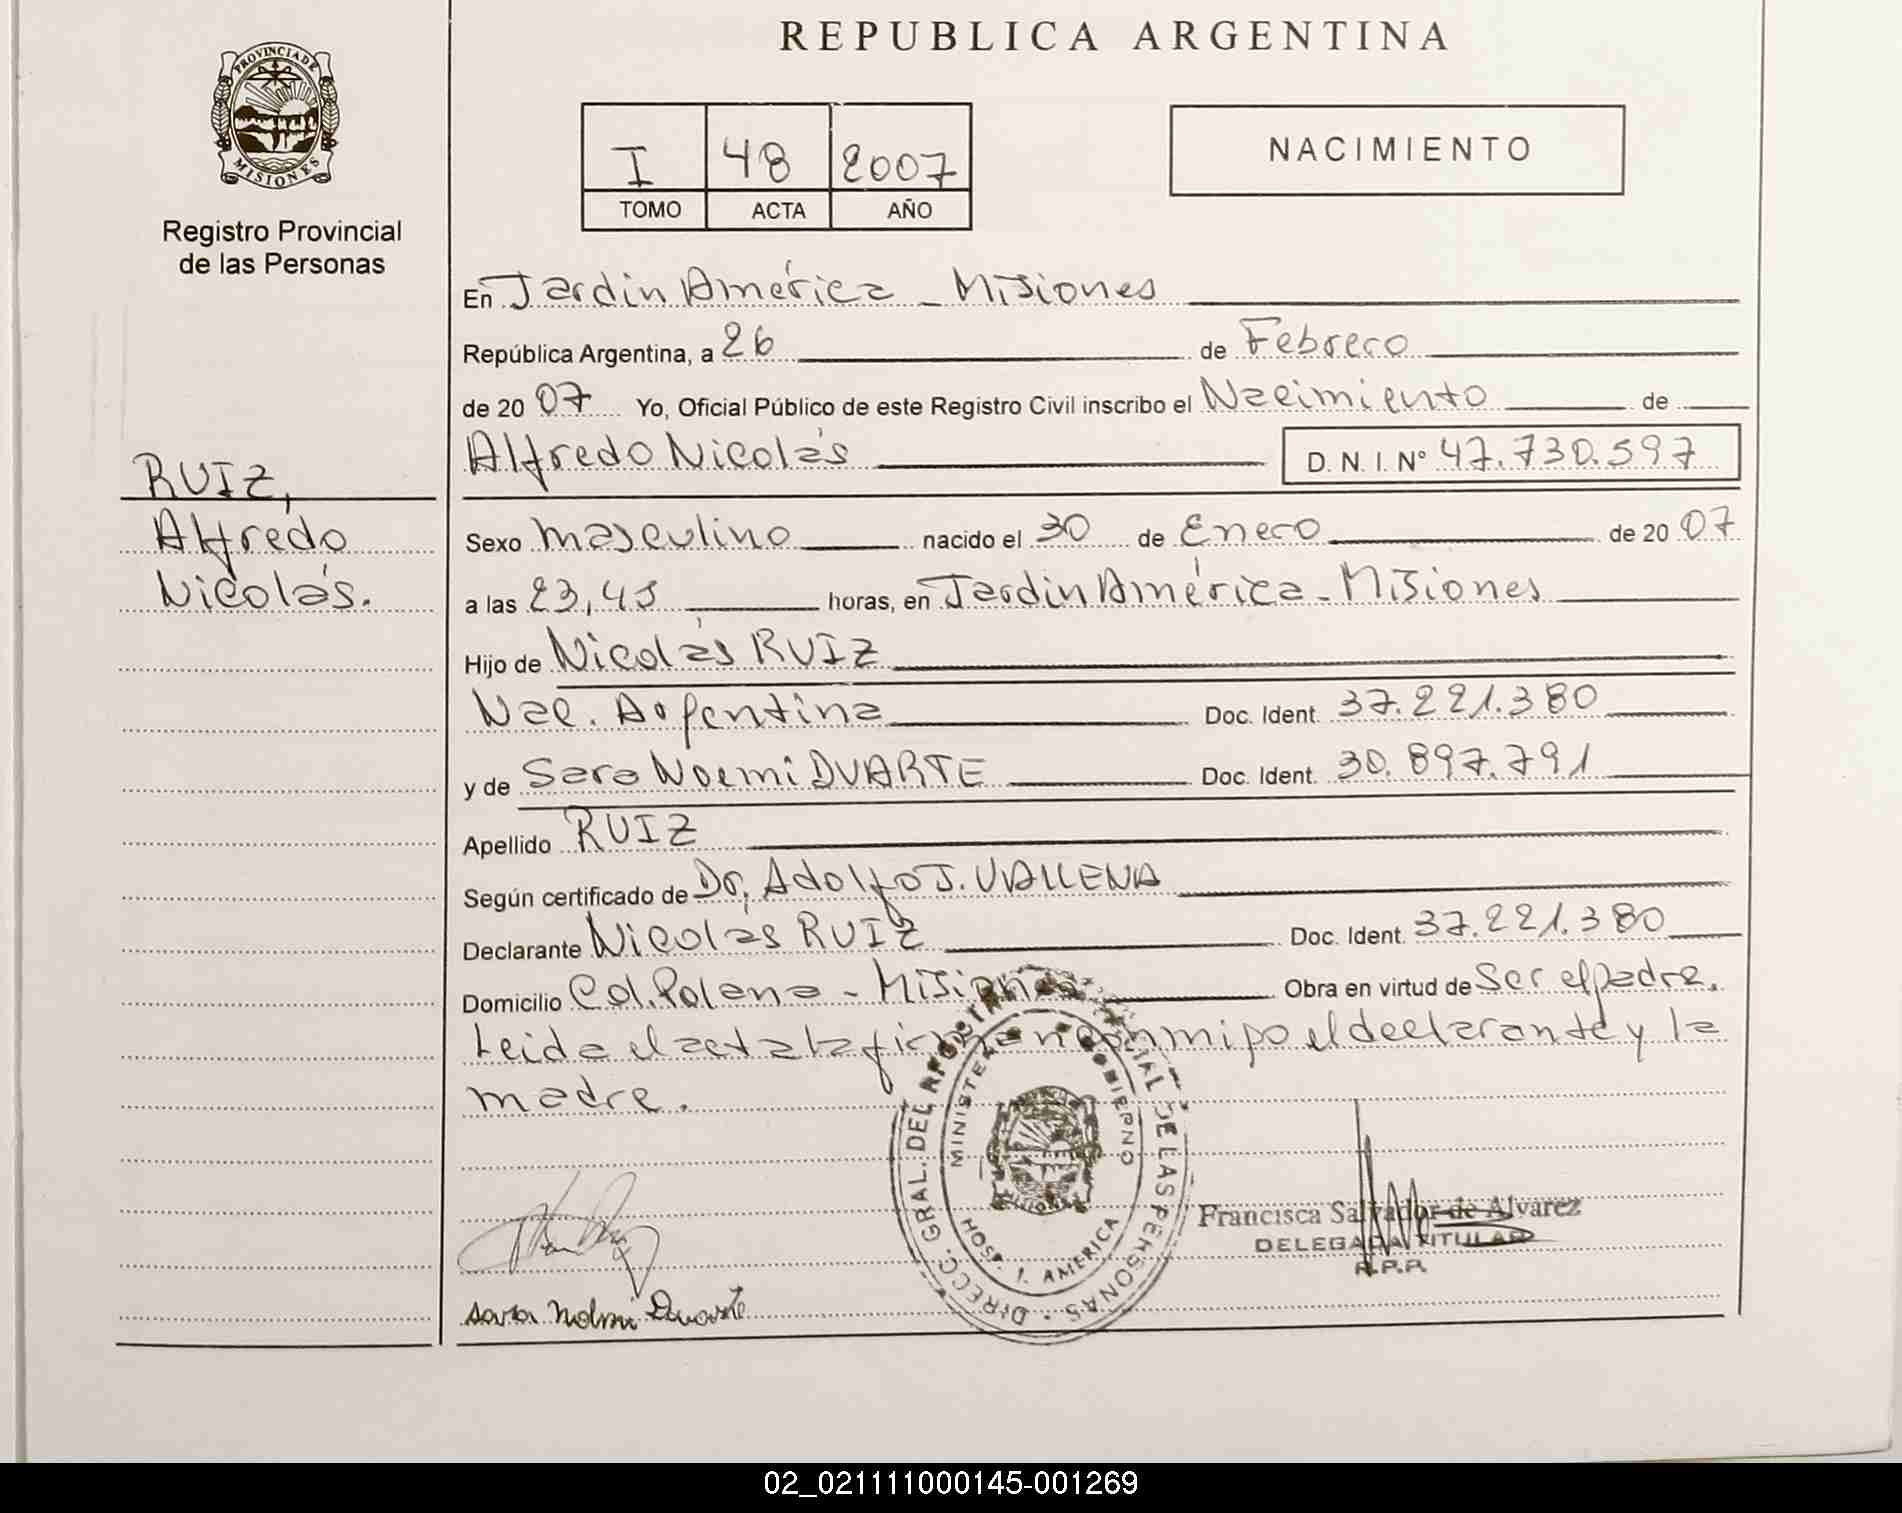 REPUBLICA ARGENTINA
PROVINCIA DE
MISIONES
Registro Provincial
de las Personas
I 48 2007
TOMO ACTA AÑO
NACIMIENTO
En Jardin América - Misiones
República Argentina, a 26 de Febrero
de 20 07 Yo, Oficial Público de este Registro Civil inscribo el Nacimiento de
Alfredo Nicolás D. N. I. N° 47.730.597
RUIZ,
Alfredo
Nicolás.
Sexo masculino nacido el 30 de Enero de 20 07
a las 23,45 horas, en Jardin América - Misiones
Hijo de Nicolás RUIZ
Nac. Argentina Doc. Ident. 37.221.380
y de Sara Noemi DUARTE Doc. Ident. 30.897.791
Apellido RUIZ
Según certificado de Dr. Adolfo J. VALLENA
Declarante Nicolás RUIZ Doc. Ident. 37.221.380
Domicilio Col. Polana - Misiones Obra en virtud de Ser el padre.
Leida el acta la firman conmigo el declarante y la
madre.
DIRECC. GRAL. DEL REGISTRO PROVINCIAL DE LAS PERSONAS
MINISTERIO GOBIERNO
HOSP. J. AMERICA
MISIONES
Francisca Salvador de Alvarez
DELEGADA TITULAR
R.P.P.
Sara Nohmi Duarte
02_021111000145-001269